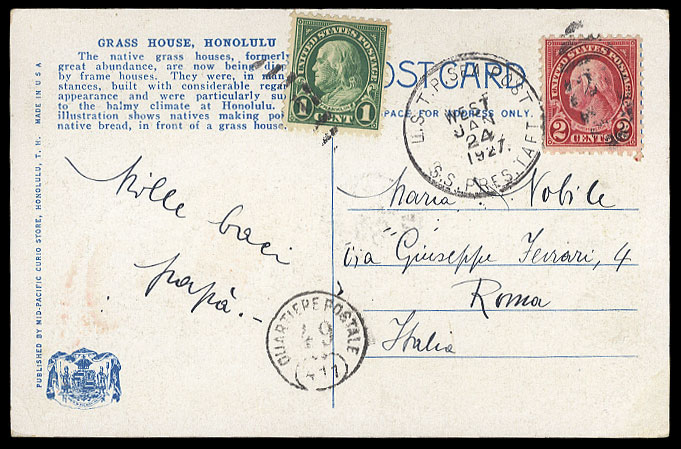 GRASS HOUSE, HONOLULU
The native grass houses, formerly
great abundance, are now being di
by frame houses. They were, in man
stances, built with considerable regar
appearance and were particularly su
to the halmy climate at Honolulu.
illustration shows natives making poi
native bread, in front of a grass house.
PUBLISHED BY MID-PACIFIC CURIO STORE, HONOLULU, T. H. MADE IN U S A
UNITED STATES POSTAGE
1 CENT 1
OSTCARD
PACE FOR ADDRESS ONLY.
U.S.T.P. SEA POST
WEST
JAN
24
1927.
S.S. PRES. TAFT
UNITED STATES POSTAGE
2 CENTS 2
Mille baci
papà.-
Maria Nobile
Via Giuseppe Ferrari, 4
Roma
Italia
QUARTIERE POSTALE